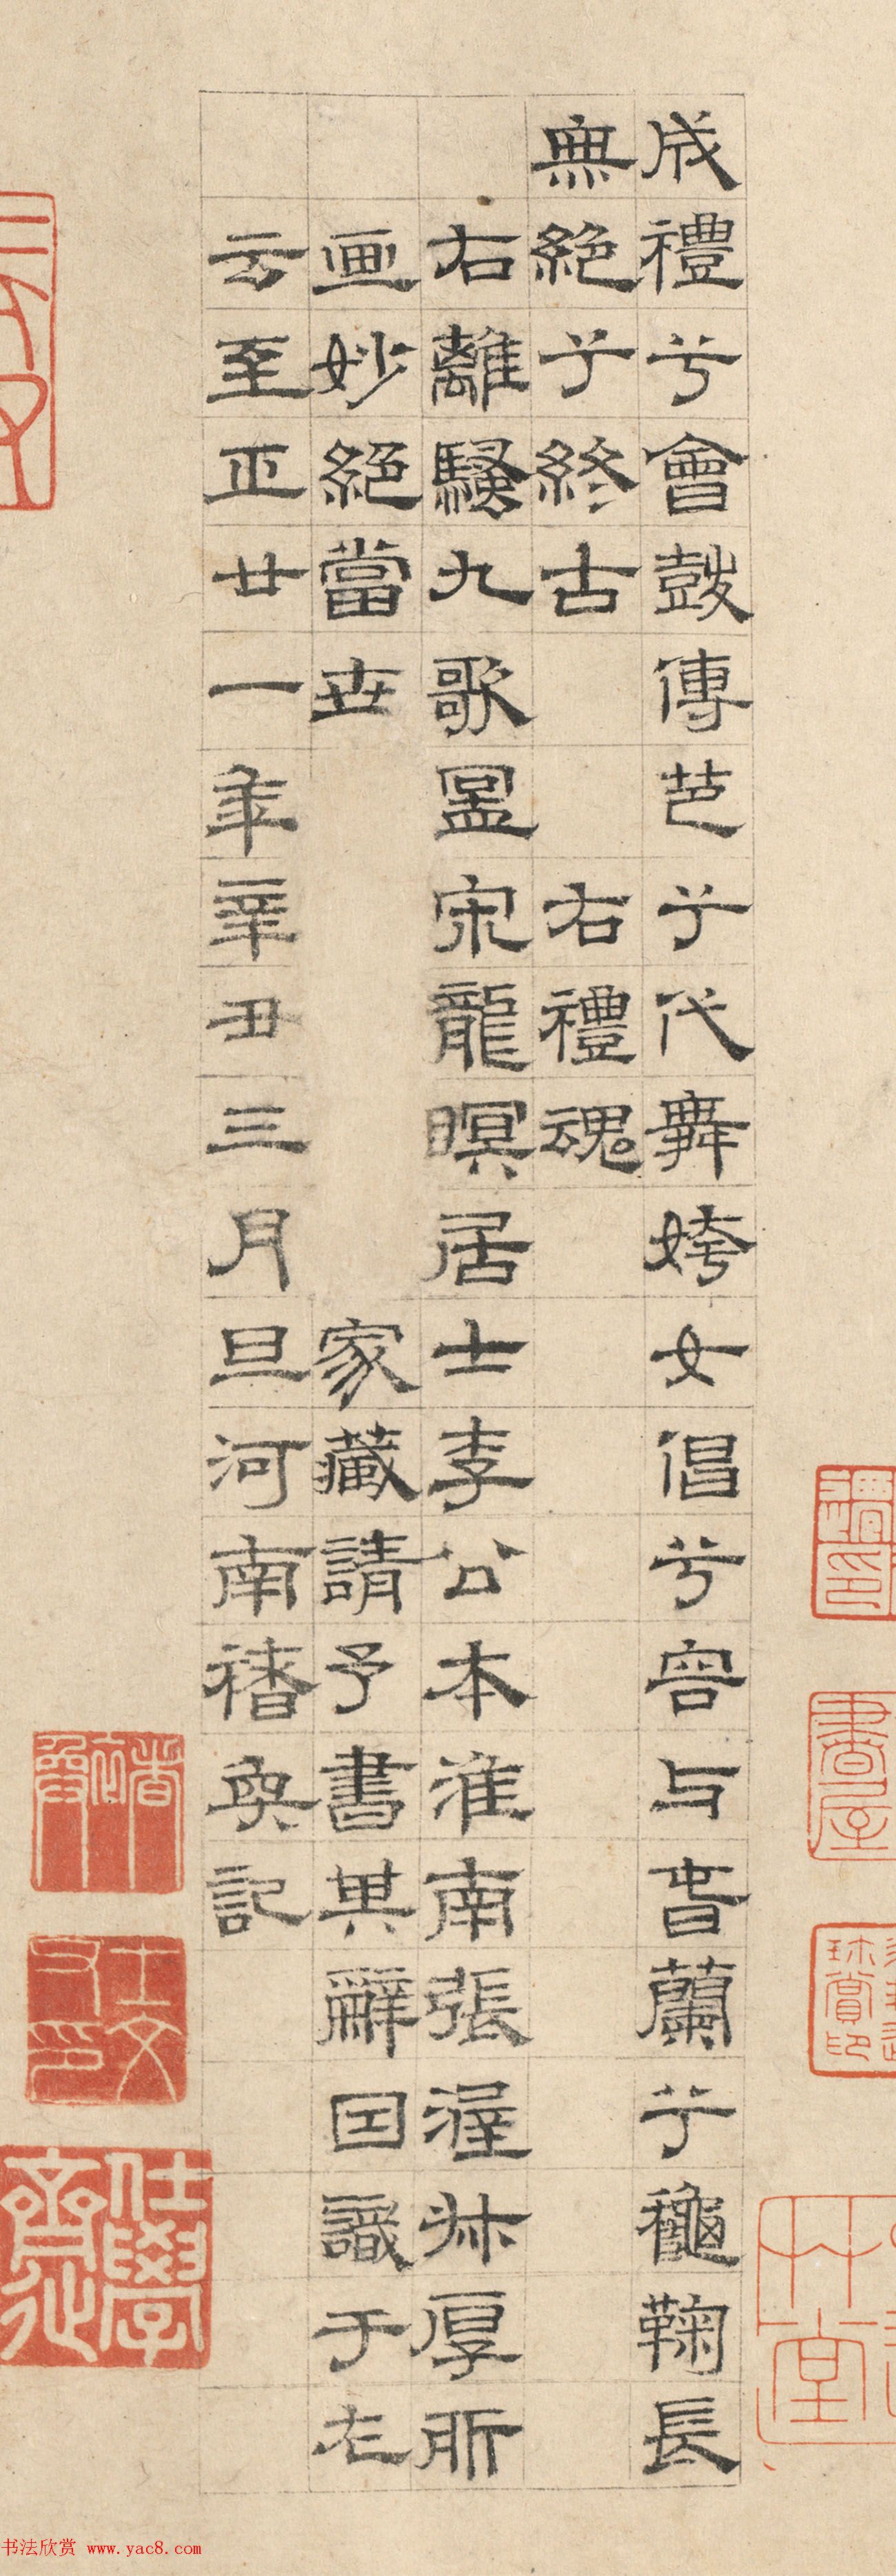 成禮兮會鼓傳芭兮代舞姱女倡兮容与春蘭兮穐鞠長
無絶兮終古 右禮魂
右離騷九歌圖宋龍瞑居士李公本淮南張渥叔厚所
画妙絕當世 家藏請予書其辭因識于左
云至正廿一年辛丑三月旦河南褚奐記
書屋
珍賞印
士文
仕學齋
书法欣赏 www.yac8.com